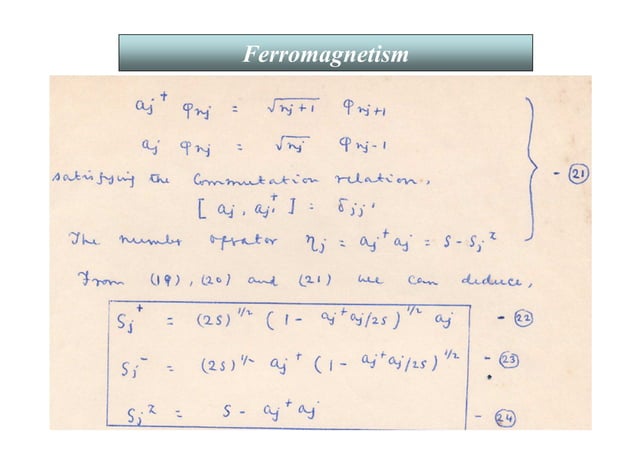 Ferromagnetism
aj⁺ φnj = √nj+1 φnj+1
aj φnj = √nj φnj-1
satisfying the Commutation relation, - (21)
[ aj, aj'⁺ ] = δjj'
The number oprator ηj = aj⁺aj = S - Sjᶻ
From (19), (20) and (21) we can deduce,
Sj⁺ = (2S)^1/2 ( 1 - aj⁺aj/2S )^1/2 aj - (22)
Sj⁻ = (2S)^1/2 aj⁺ ( 1 - aj⁺aj/2S )^1/2 - (23)
Sjᶻ = S - aj⁺aj - (24)